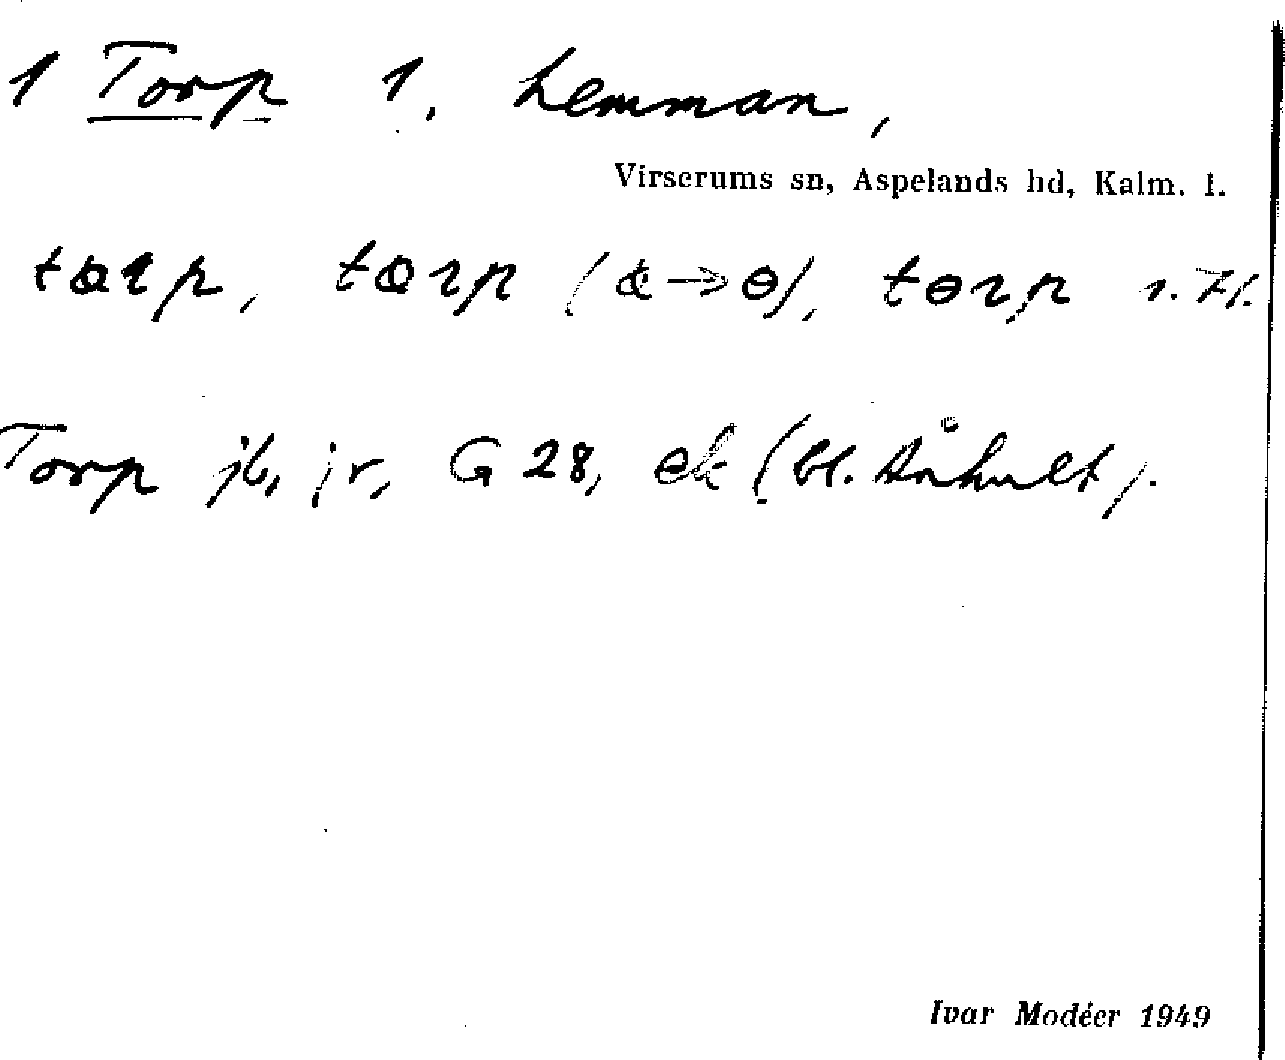 1 Torp 1, hemman,
Virserums sn, Aspelands hd, Kalm. l.
tɵrp, tɵrp ( → ɵ), tɵrp
Torp jb, jr, G 28, ek (bl. Ånhult).
Ivar Modéer 1949